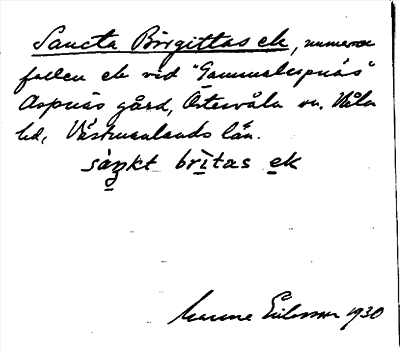 Sancta Birgittas ek, numera
fallen ek vid "Gammalaspnäs"
Aspnäs gård, Östervåla sn. Våla
hd, Västmanlands län.
sáŋkt brìtas ek
Eriksson 1930